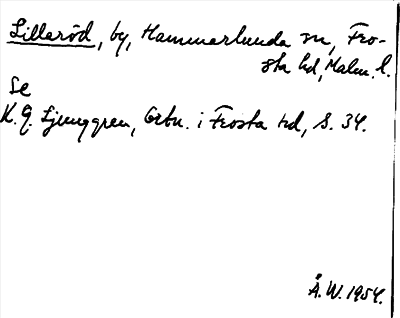 Lillaröd, by, Hammarlunda sn, Fro-
sta hd, Malm. l.
Se
K. G. Ljunggren, Ortn. i Frosta hd, S. 34.
Å. W. 1954.